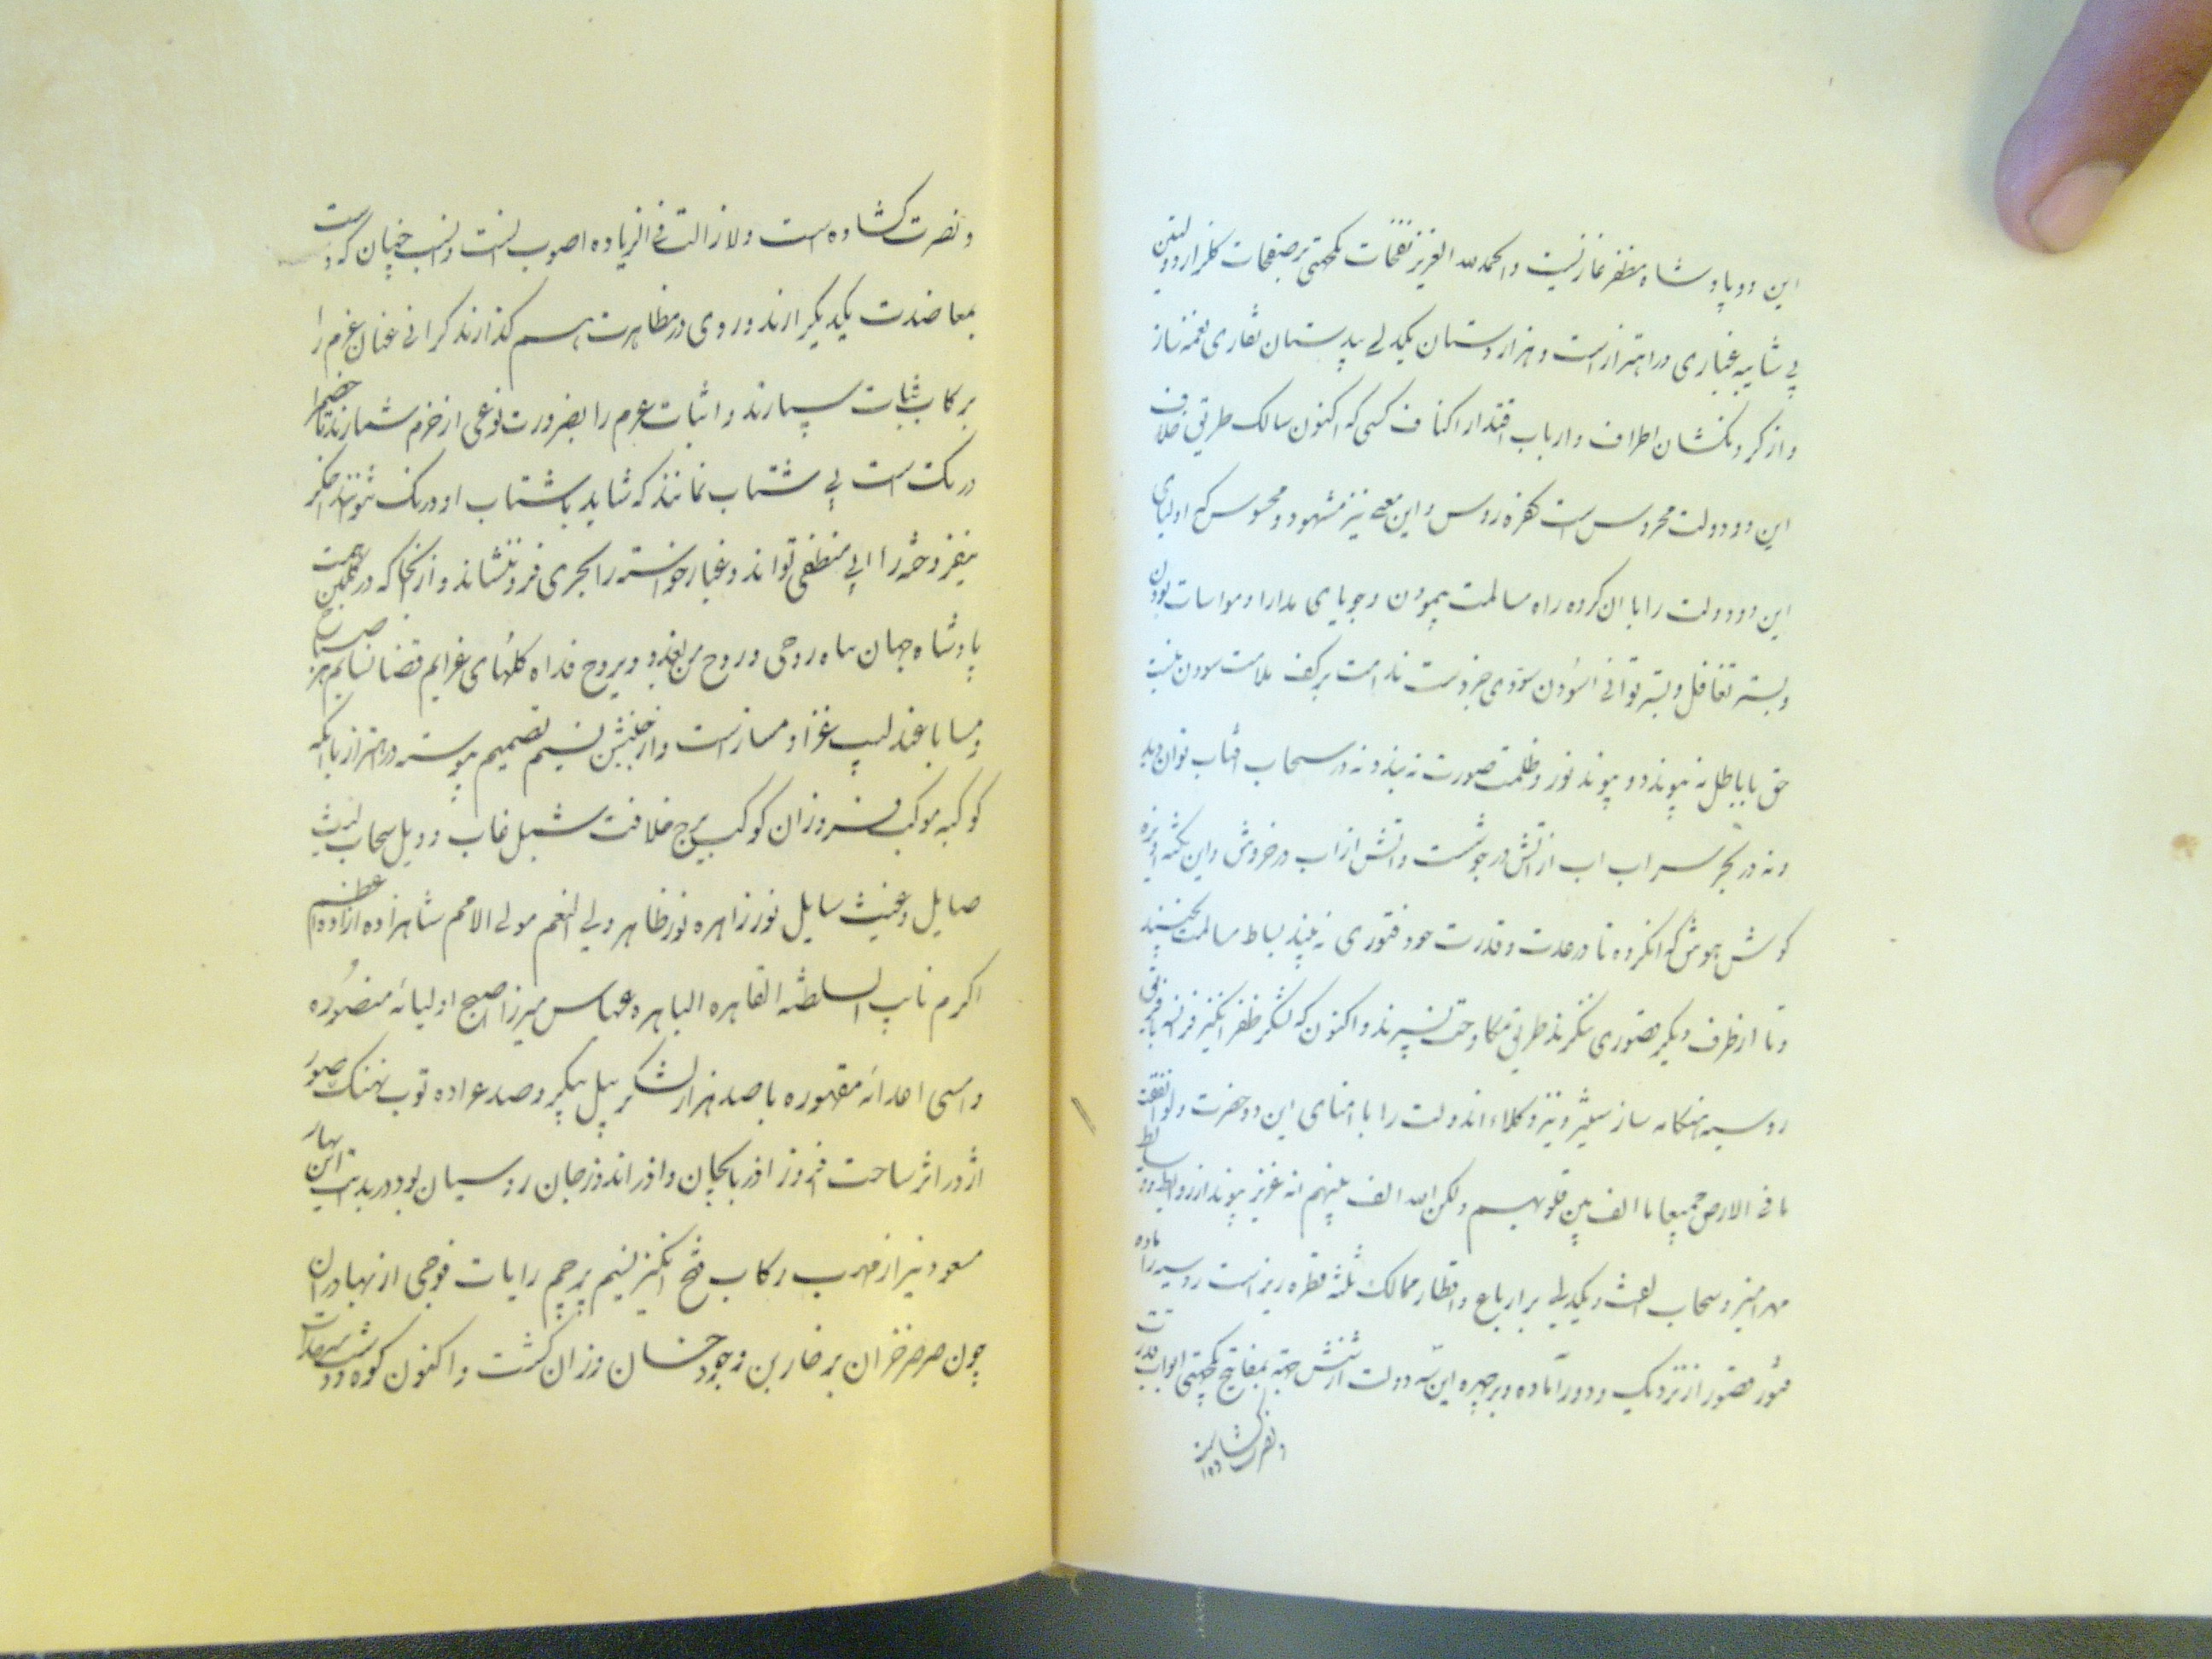 این دو پادشاه مظفر غازنیست و الحمدلله العزیز نفحات یکجهتی بر صفحات گلزار دولتین
بی شایبه غباری در اهتزاز است و هزاردستان یکدلی بپدستان نقاری نغمه نیاز
و از گردنکشان اطراف و ارباب اقتدار اکناف کسی که اکنون سالک طریق خلاف
این دو دولت محروس است کفره روس و این معنی نیز مشهود و محسوس که اولیای
این دو دولت را با ان گروه راه مسالمت پیمودن و جویای مدارا و مواسات بودن
و بستر تغافل و بستر توانی اسودن سودی جز دست ندامت بر کف ملامت سودن نیست
حق با باطل نه پیوندد و پیوند نور و ظلمت صورت نه بندد نه در سحاب افتاب توان دید
و نه در بحر سراب اب از اتش در جوشست و اتش از اب در خروش و این نکته اویزه
گوش هوش که انگروه تا در عدت و قدرت خود فتوری نه بینند بساط مسالمت نچینند
و تا از طرف دیگر قصوری ننگرند طریق مکاوحت نسپرند و اکنون که لشکر ظفر انگیز فرانسه با فرقه
روسیه هنگامه ساز ستیز و نیز وکلاء اندولت را با امنای این دو حضرت و لو انفقت
ما فی الارض جمیعا ما الف بین قلوبهم ولکن الله الف بینهم انه عزیز پیوند از روابط
مهر امیز و سحاب الفت و یکدلی بر ارباع و اقطار ممالک ثلثه قطره ریز است روسیه را ماده
فتور و قصور از نزدیک و دور آماده و بر چهره این سه دولت از شش جهة بمفاتیح یکجهتی ابواب قدرت
و نصرت گشاده است
و نصرت گشاده است و لا زالت فی الزیاده اصوب انست و انسب چنان که دست
بمعاضدت یکدیگر ارند و روی در مظاهرت هم گذارند گرانی عنان عزم را
بر کاب ثبات سپارند و اثبات عزم را بضرورت نوعی از حزم شمارند تا خصم را
درنگ است بی شتاب نمانند که شاید با شتاب او درنگ نتوانند اخگر
نیفروخته را ابی منطفی تواند و غبار خواسته را بحری فرو ننشاند و از انجا که در گلبن همت
پادشاه جهان پناه روحی و روح من یغدو و یروح فداه گلهای عزایم قضا نسایم هر صباح
و مسا با عندلیب غزا دمساز است و از جنبش نسیم تصمیم پیوسته در اهتزاز با انکه
کوکبه موکب فروزان کوکب برج خلافت شبل غاب و وبل سحاب لیث
صایل و غیث سایل نور زاهره نور ظاهر ولی النعم مولی الامم شاهزاده ازاده اعظم
اکرم نایب السلطنه القاهره الباهره عباس میرزا اصبح اولیائه منصوره
و امسی اعدائه مقهوره با صد هزار لشکر پیل پیکر و صد عراده توپ نهنگ صور
اژدر اثر ساحت افروز اذربایجان و اذر اندوز جان روسیان بود در بدایت این بهار
مسعود نیز از مهب رکاب فتح انگیز نسیم پرچم رایات فوجی از بهادران
چون صرصر خزان بر خاربن وجود خسان وزان گشت و اکنون کوه و دشت سرحدات